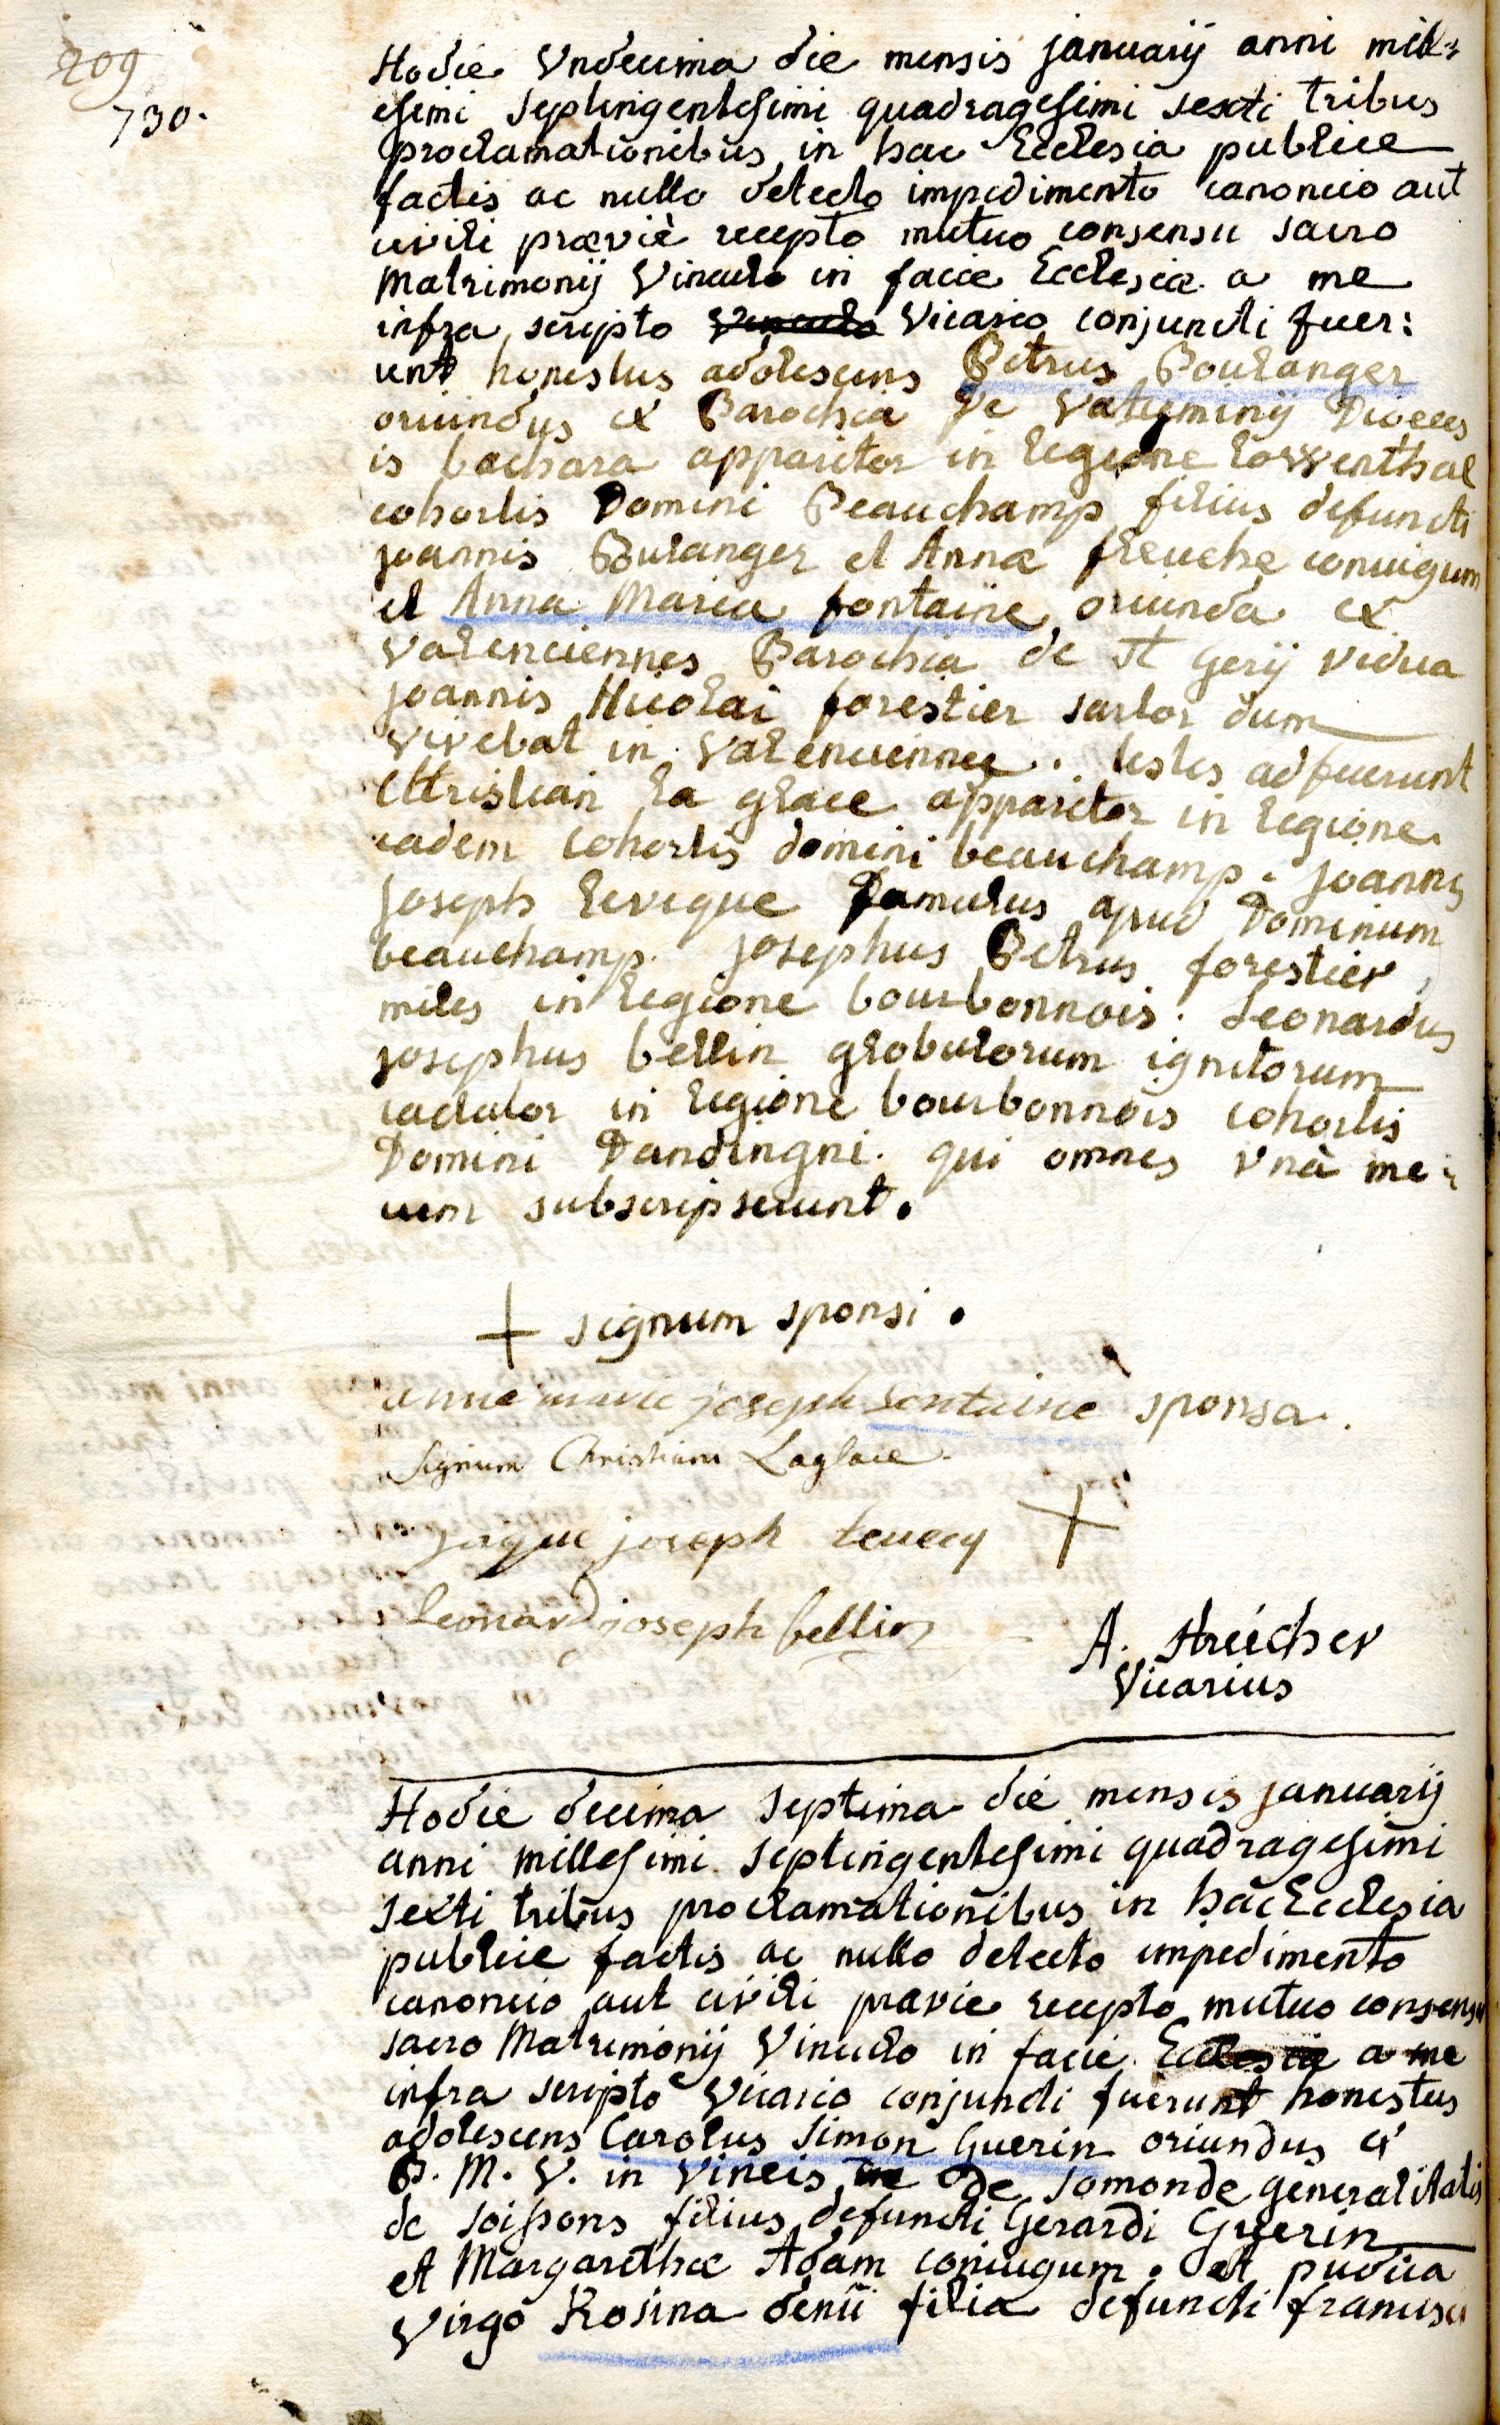 209
730.
Hodie Undecima die mensis januarij anni mill=
esimi septingentesimi quadragesimi sexti tribus
proclamationibus in hac Ecclesia publice
factis ac nullo detecto impedimento canonico aut
civili præviè recepto mutuo consensu sacro
Matrimonij Vinculo in facie Ecclesiæ a me
infra scripto Vinculo Vicario conjuncti fuer:
unt honestus adolescens Petrus Boulanger
oriundus ex Parochia de Dioeces
is bachara apparitor in legione
cohortis Domini Beauchamp filius defuncti
joannis Bulanger et Annæ freuche coniugum
et Anna Maria fontaine oriunda ex
Valenciennes Parochia de St gerij vidua
joannis Nicolai forestier sartor dum
vivebat in Valencienne. testes adfuerunt
Christian la glace apparitor in legione
eadem cohortis domini beauchamp. joannes
joseph leveque famulus apud Dominum
beauchamp. josephus Petrus forestier,
miles in legione bourbonnois. Leonardus
josephus bellin globulorum ignitorum
iaculator in legione bourbonnois cohortis
Domini Dandingni. qui omnes unà me=
cum subscripserunt.
+ signum sponsi.
anne marie joseph fontaine sponsa.
Signum Christiani Laglace.
jaque joseph +
Leonard joseph bellin
A. Streicher
Vicarius
Hodie decima septima die mensis januarij
anni millesimi septingentesimi quadragesimi
sexti tribus proclamationibus in hac Ecclesia
publice factis ac nullo detecto impedimento
canonico aut civili prævie recepto mutuo consensu
sacro Matrimonij Vinculo in facie Ecclesiæ a me
infra scripto Vicario conjuncti fuerunt honestus
adolescens Carolus Simon Guerin oriundus ex
B. M. V. in Vineis de Somonde generalitatis
de Soissons filius defuncti Gerardi Guerin
et Margarethæ Adam coniugum. et pudica
Virgo Rosina denii filia defuncti francisci